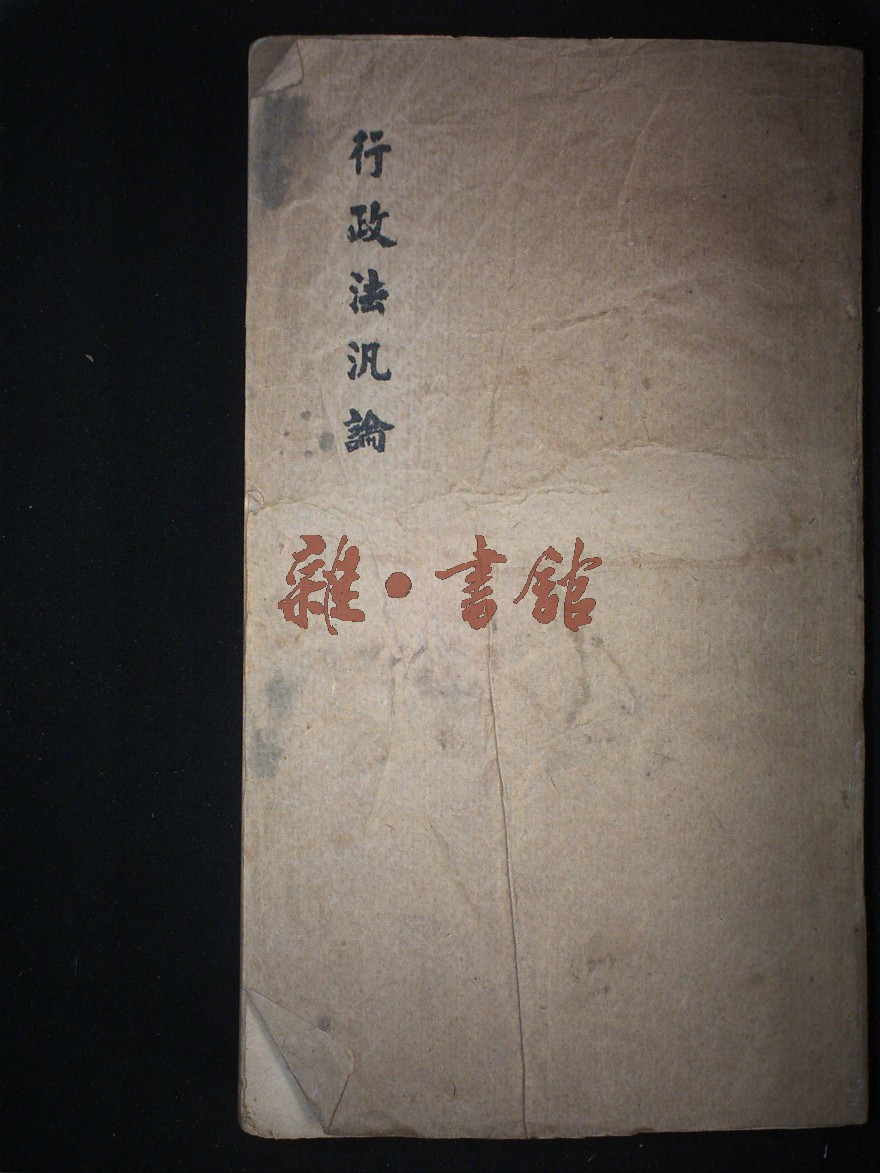 行政法汎論
雜·書館